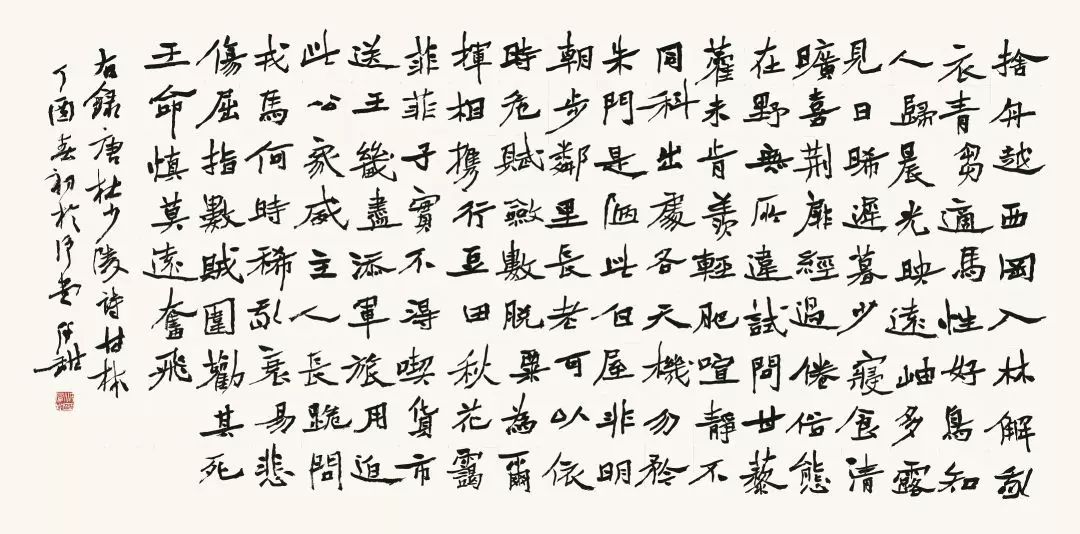 捨舟越西岡入林解我
衣青芻適馬性好鳥知
人歸晨光映遠岫多露
見日晞遲暮少寢食清
曠喜荊扉經過倦俗態
在野無所違試問甘藜
藿未肯羨輕肥喧靜不
同科出處各天機勿矜
朱門是陋此白屋非明
朝步鄰里長老可以依
時危賦斂數脫粟為爾
揮相携行豆田秋花靄
菲菲子實不得喫貨市
送王畿盡添軍旅用迫
此公家威主人長跪問
戎馬何時稀我衰易悲
傷屈指數賊圍勸其死
王命慎莫遠奮飛
右錄唐杜少陵詩甘林
丁酉春初於